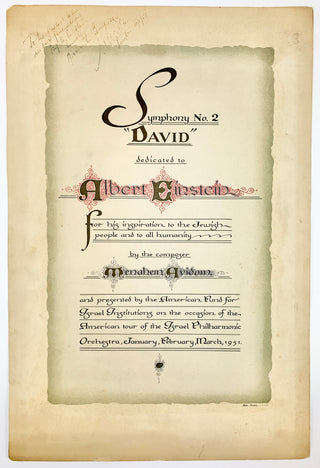 Symphony No. 2
"DAVID"
dedicated to
Albert Einstein
For his inspiration to the Jewish
people and to all humanity
by the composer
Menahem Avidom
and presented by the American Fund for
Israel Institutions on the occasion of the
American tour of the Israel Philharmonic
Orchestra, January, February, March, 1951.